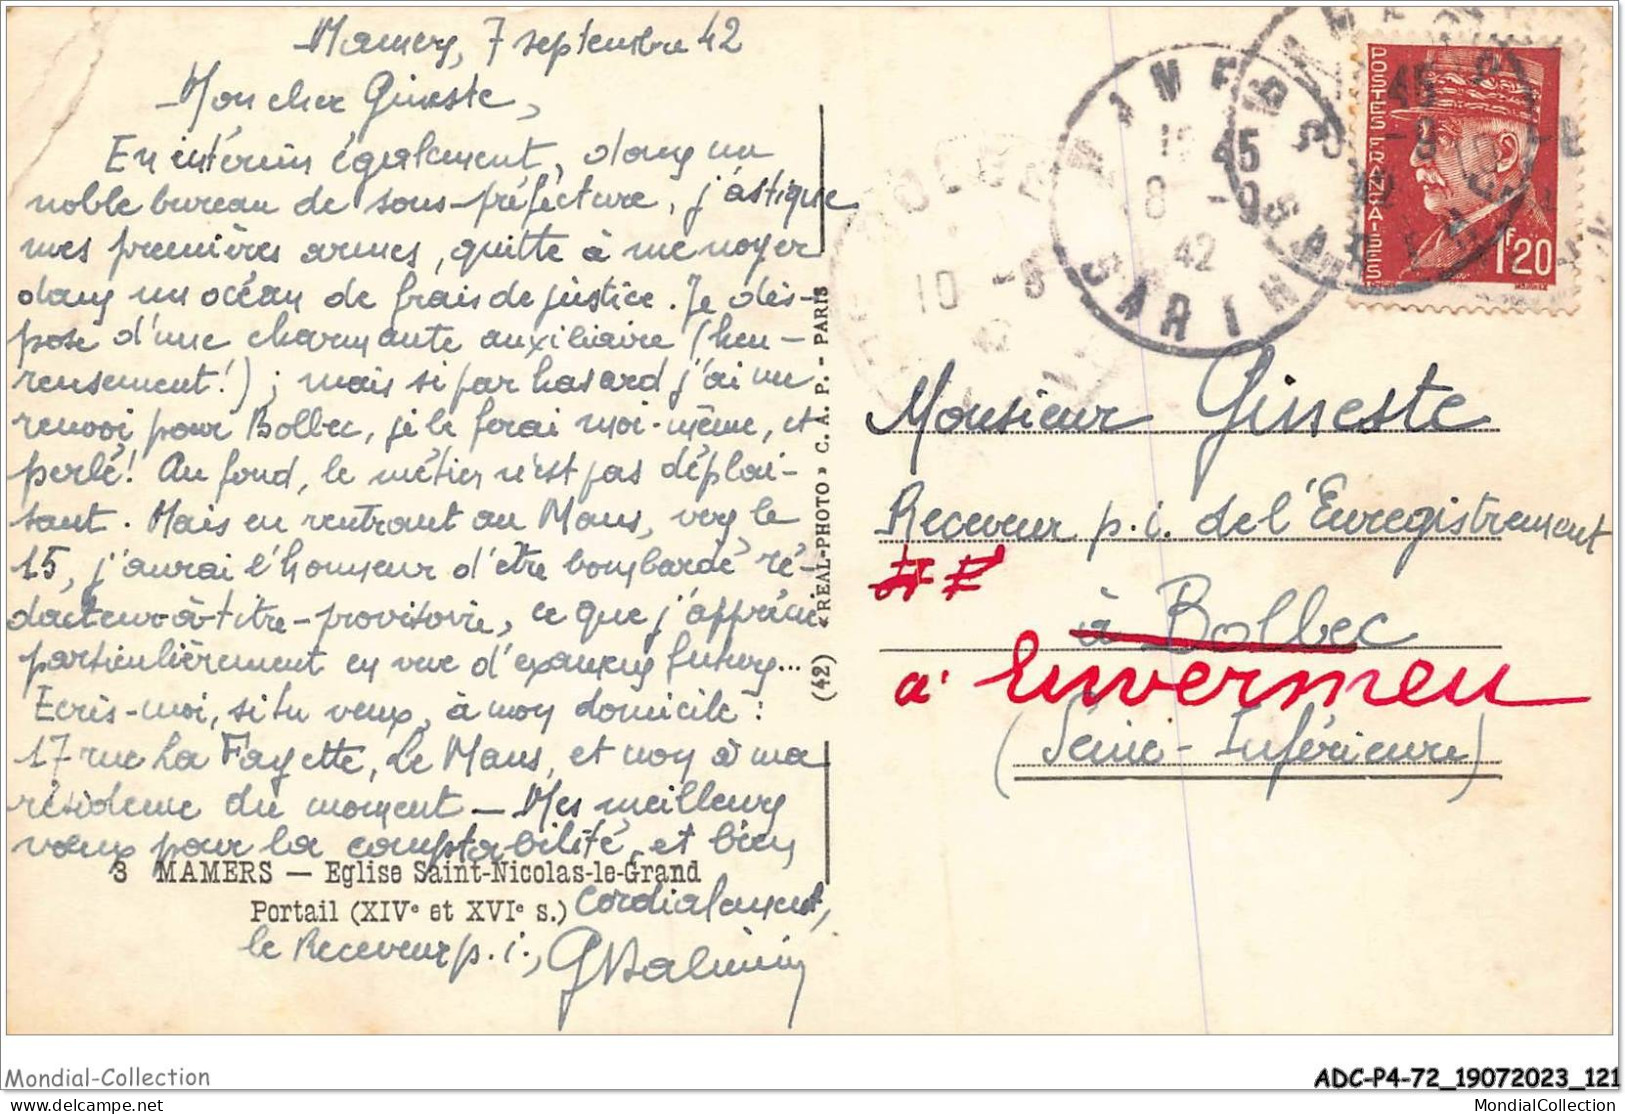 Mamers, 7 septembre 42
Mon cher Gineste,
En intérim également, dans un
noble bureau de sous-préfecture, j'astique
mes premières armes, quitte à me noyer
dans un océan de frais de justice. Je dis-
pose d'une charmante auxiliaire (heu-
reusement!); mais si par hasard j'ai un
renvoi pour Bolbec, je le ferai moi-même, et
perlé! Au fond, le métier n'est pas déplai-
sant. Mais en rentrant au Mans, vers le
15, j'aurai l'honneur d'être bombardé ré-
dacteur-à-titre-provisoire, ce que j'apprécie
particulièrement en vue d'examens futurs...
Ecris-moi, si tu veux, à mon domicile :
17 rue La Fayette, Le Mans, et non à ma
résidence du moment - Mes meilleurs
vœux pour la comptabilité, et bien
3 MAMERS — Eglise Saint-Nicolas-le-Grand
Portail (XIVe et XVIe s.) cordialement,
le Receveur p. i.,
(42) « REAL-PHOTO » C. A. P. - PARIS
MAMERS
15 45
8 -9
42
SARTHE
10 -9
42
POSTES FRANÇAISES
1f20
Monsieur Gineste
Receveur p. i. de l'Enregistrement
à Bolbec
à Envermeu
(Seine-Inférieure)
Mondial-Collection
ADC-P4-72_19072023_121
the-collection.net
MondialCollection